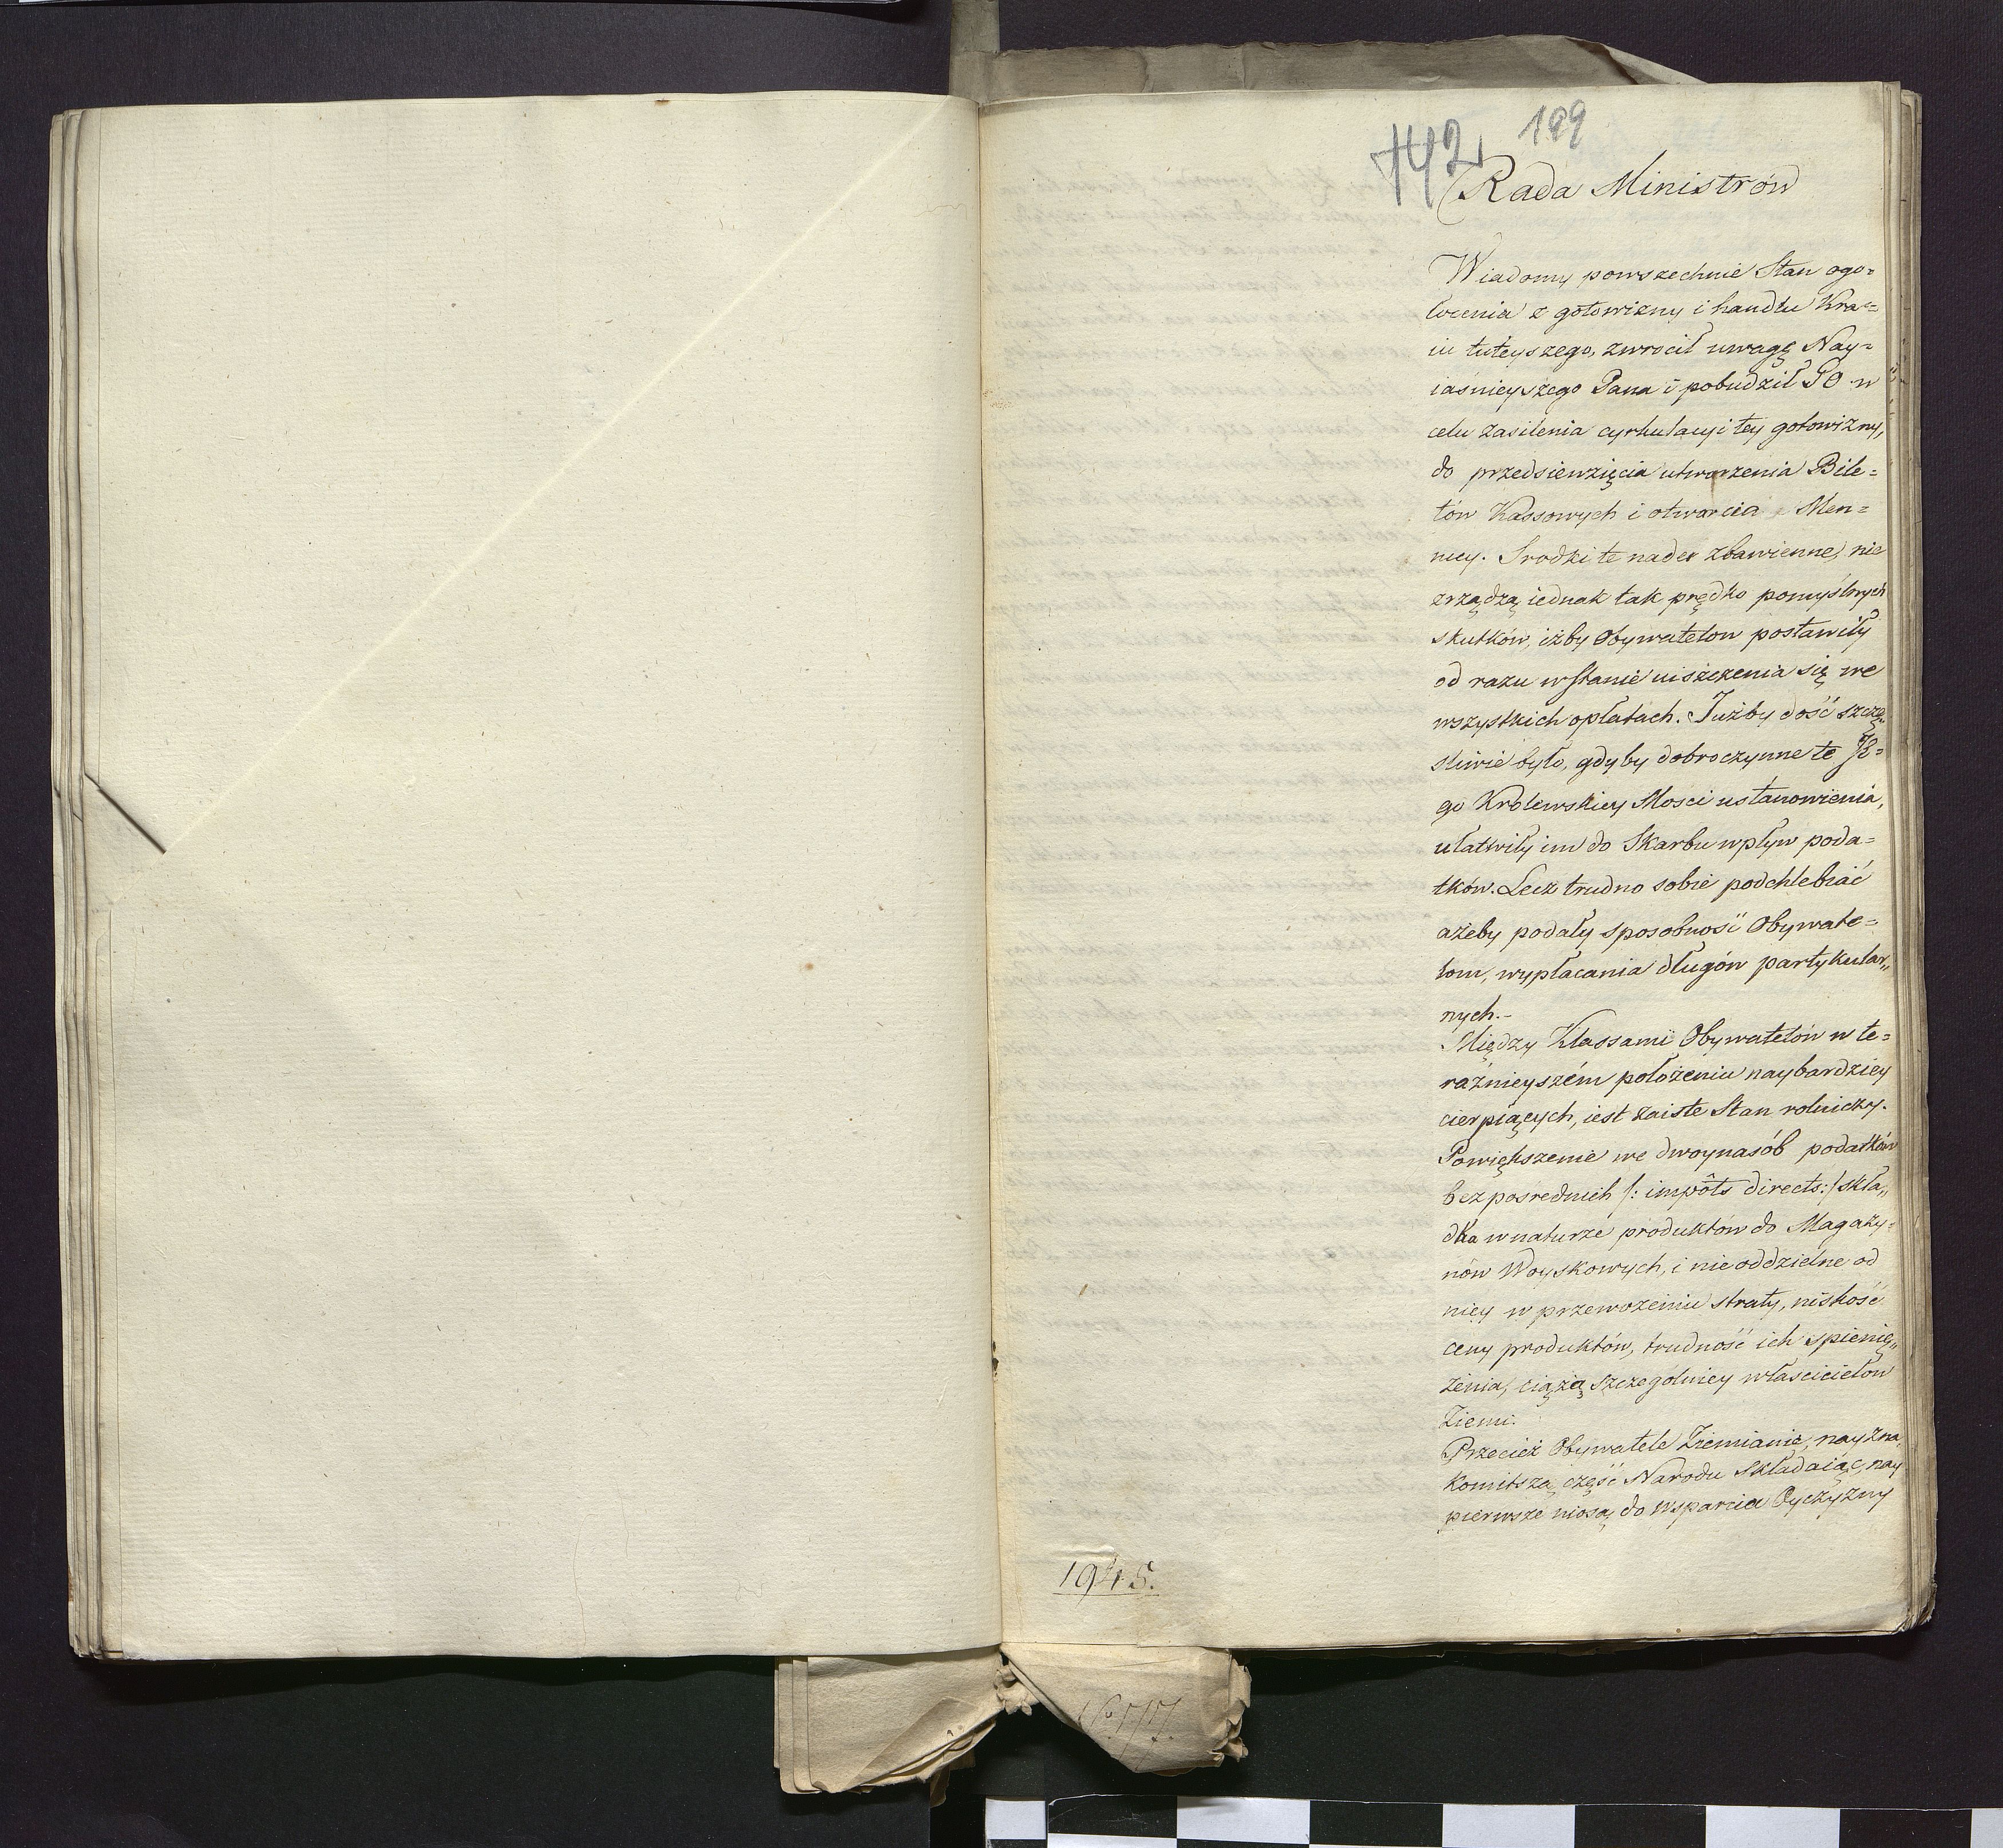 142 199
Rada Ministrów
Wiadomy powszechnie Stan ogo=
łocenia z gotowizny i handlu Kra=
iu tuteyszego, zwrocił uwagę Nay=
iaśnieyszego Pana i pobudził GO w
celu zasilenia cyrkulacyi tey gotowizny,
do przedsiewzięcia utworzenia Bile=
tów Kassowych i otwarcia Men=
nicy. Srodki te nader zbawienne, nie
zrządzą iednak tak prędko pomyślnych
skutków, iżby Obywatelow postawiły
od razu w stanie uiszczenia się we
wszystkich opłatach. Jużby dość szczę„
sliwie było, gdyby dobroczynne te JE=
go Krolewskiey Mosci ustanowienia,
ułatwiły im do Skarbu wpływ poda=
tków. Lecz trudno sobie podchlebiać
ażeby podały sposobność Obywate=
lom, wypłacania długów partykular„
nych.-
Między Klassami Obywatelów w te=
raźnieyszém położeniu naybardziey
cierpiących, iest zaiste Stan rolniczy.
Powiększenie we dwoynasób podatków
bezposrednich /: impôts directs:/ skła„
dka w naturze produktów do Magazy=
nów Woyskowych, i nieoddzielne od
niey w przewożeniu straty, niskość
ceny produktów, trudność ich spienię„
żenia, ciążą szczególniey właścicielow
Ziemi.
Przecież Obywatele Ziemianie, nayzna„
komitszą część Narodu składaiąc, nay
pierwsze niosą do wsparcia Oyczyzny
1945.
1677.